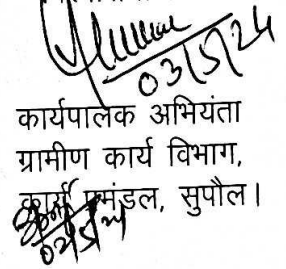 03/5/24
कार्यपालक अभियंता
ग्रामीण कार्य विभाग,
कार्य प्रमंडल, सुपौल।